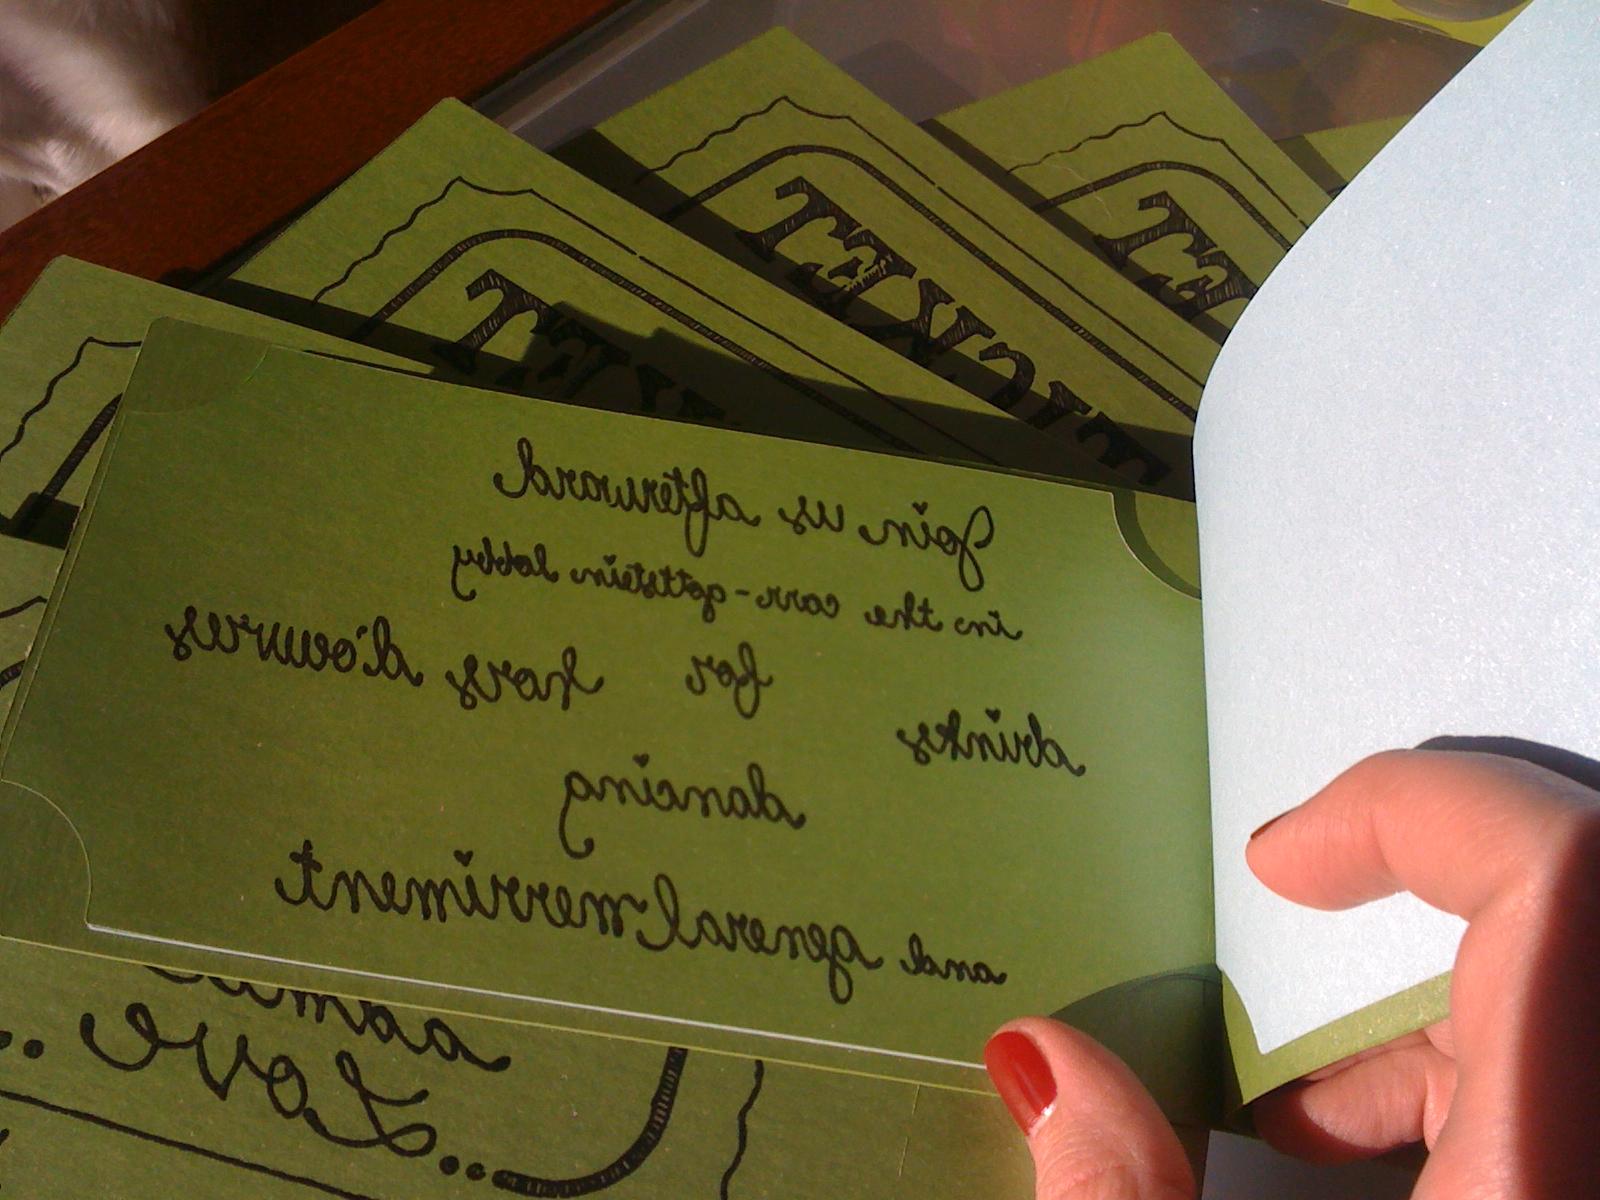 TICKET
TICKET
Join us afterward
in the carr-gottstein lobby
for hors d'ouvrves
drinks
dancing
and general merriment
Love